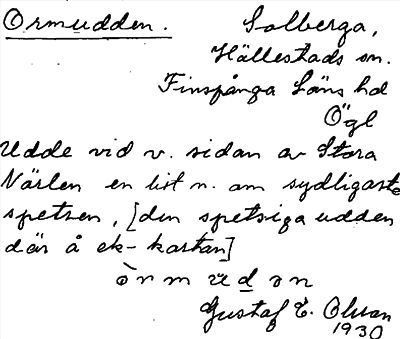 Ormudden. Solberga,
Hällestads sn.
Finspånga Läns hd
Ögl
Udde vid v. sidan av Stora
Närlen en bit n. om sydligaste
spetsen, [den spetsiga udden
där å ek-kartan]
Gustaf E. Olsson
1930